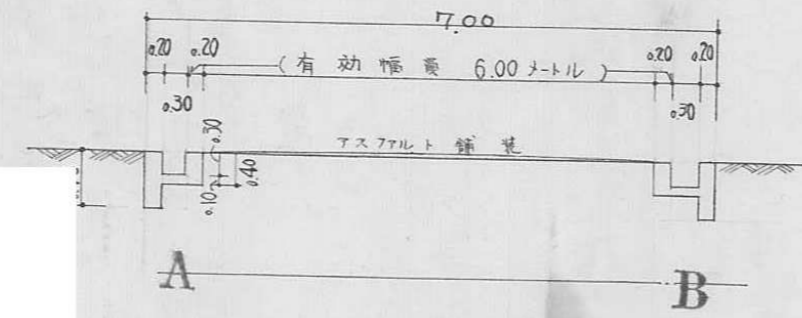 7.00
0.20 0.20 (有効幅員 6.00メートル) 0.20 0.20
0.30 0.30
アスファルト舗装
0.30
0.40
0.10
A B